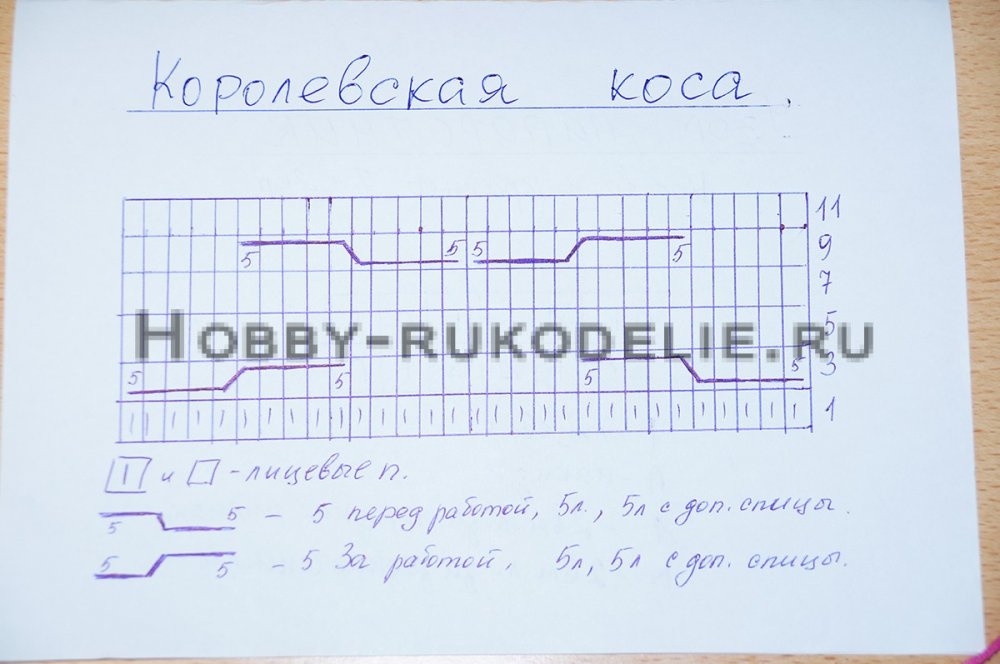 Королевская коса.
11
5 5 5 5 9
7
5
HOBBY-RUKODELIE.RU
5 5 5 5 3
1
I и □ - лицевые п.
5 5 - 5 перед работой, 5л., 5л с доп. спицы.
5 5 - 5 За работой. 5л, 5л с доп. спицы.